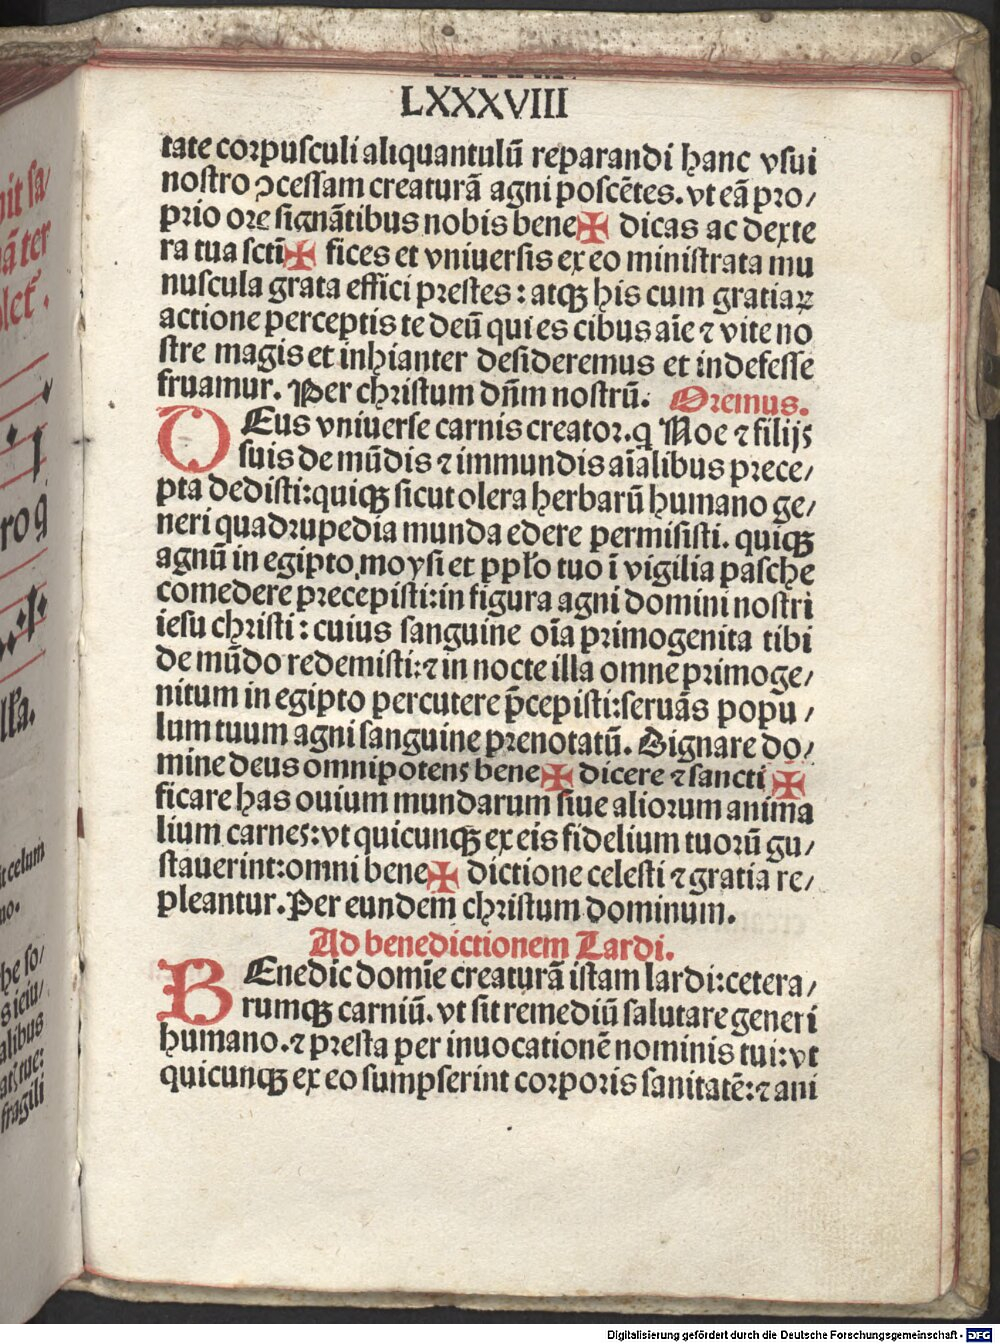 LXXXVIII
tate corpusculi aliquantulū reparandi hanc vsui
nostro ↄcessam creaturā agni poscētes. vt eā pro/
prio ore signātibus nobis bene✠ dicas ac dexte
ra tua sctī✠ fices et vniuersis ex eo ministrata mu
nuscula grata effici prestes : atqꝫ his cum gratiaꝝ
actione perceptis te deū qui es cibus aīe ⁊ vite no
stre magis et inhianter desideremus et indefesse
fruamur. Per christum dn̄m nostrū. Oremus.
DEus vniuerse carnis creator. q Noe ⁊ filijs
suis de mūdis ⁊ immundis aīalibus prece/
pta dedisti: quiqꝫ sicut olera herbarū humano ge/
neri quadrupedia munda edere permisisti. quiqꝫ
agnū in egipto moysi et ppl'o tuo ī vigilia pasche
comedere precepisti: in figura agni domini nostri
iesu christi : cuius sanguine oīa primogenita tibi
de mūdo redemisti: ⁊ in nocte illa omne primoge/
nitum in egipto percutere p̄cepisti: seruās popu/
lum tuum agni sanguine prenotatū. Dignare do/
mine deus omnipotens bene✠ dicere ⁊ sancti ✠
ficare has ouium mundarum siue aliorum anima
lium carnes: vt quicunqꝫ ex eis fidelium tuorū gu/
stauerint: omni bene✠ dictione celesti ⁊ gratia re/
pleantur. Per eundem christum dominum.
Ad benedictionem Lardi.
BEnedic domīe creaturā istam lardi: cetera/
rumqꝫ carniū. vt sit remediū salutare generi
humano. ⁊ presta per inuocationē nominis tui: vt
quicunqꝫ ex eo sumpserint corporis sanitatē: ⁊ ani
nit sa/
ter
plet̄.
rog
lla.
it celum
no.
he so/
s ieiu/
alibus
tue:
fragili
Digitalisierung gefördert durch die Deutsche Forschungsgemeinschaft - DFG